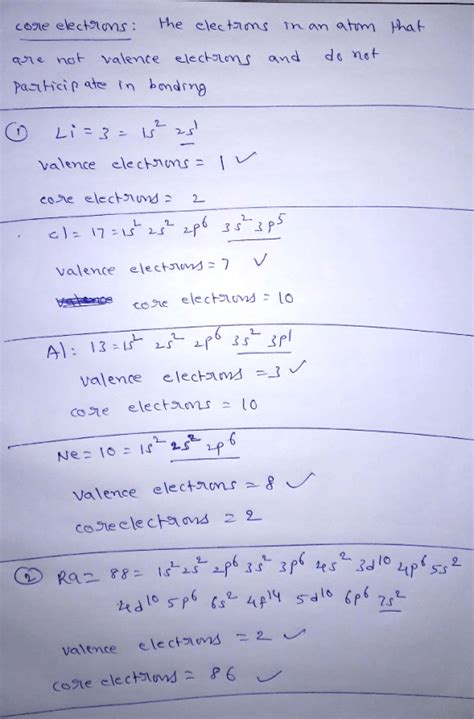 core electrons: the electrons in an atom that
are not valence electrons and do not
participate in bonding
① Li = 3 = 1s² 2s¹
valence electrons = 1 ✓
core electrons = 2
Cl = 17 = 1s² 2s² 2p⁶ 3s² 3p⁵
valence electrons = 7 ✓
core electrons = 10
Al: 13 = 1s² 2s² 2p⁶ 3s² 3p¹
valence electrons = 3 ✓
core electrons = 10
Ne = 10 = 1s² 2s² 2p⁶
valence electrons = 8 ✓
core electrons = 2
② Ra = 88 = 1s² 2s² 2p⁶ 3s² 3p⁶ 4s² 3d¹⁰ 4p⁶ 5s²
4d¹⁰ 5p⁶ 6s² 4f¹⁴ 5d¹⁰ 6p⁶ 7s²
valence electrons = 2 ✓
core electrons = 86 ✓